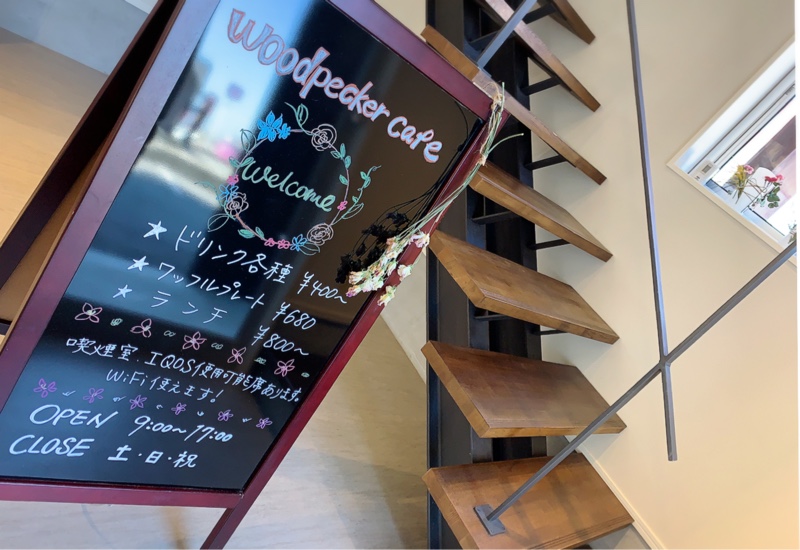 woodpecker cafe
welcome
★ ドリンク各種 ¥400~
★ ワッフルプレート ¥680
★ ランチ ¥800~
喫煙室・IQOS使用可能席あります。
WiFi使えます!
OPEN 9:00~17:00
CLOSE 土・日・祝